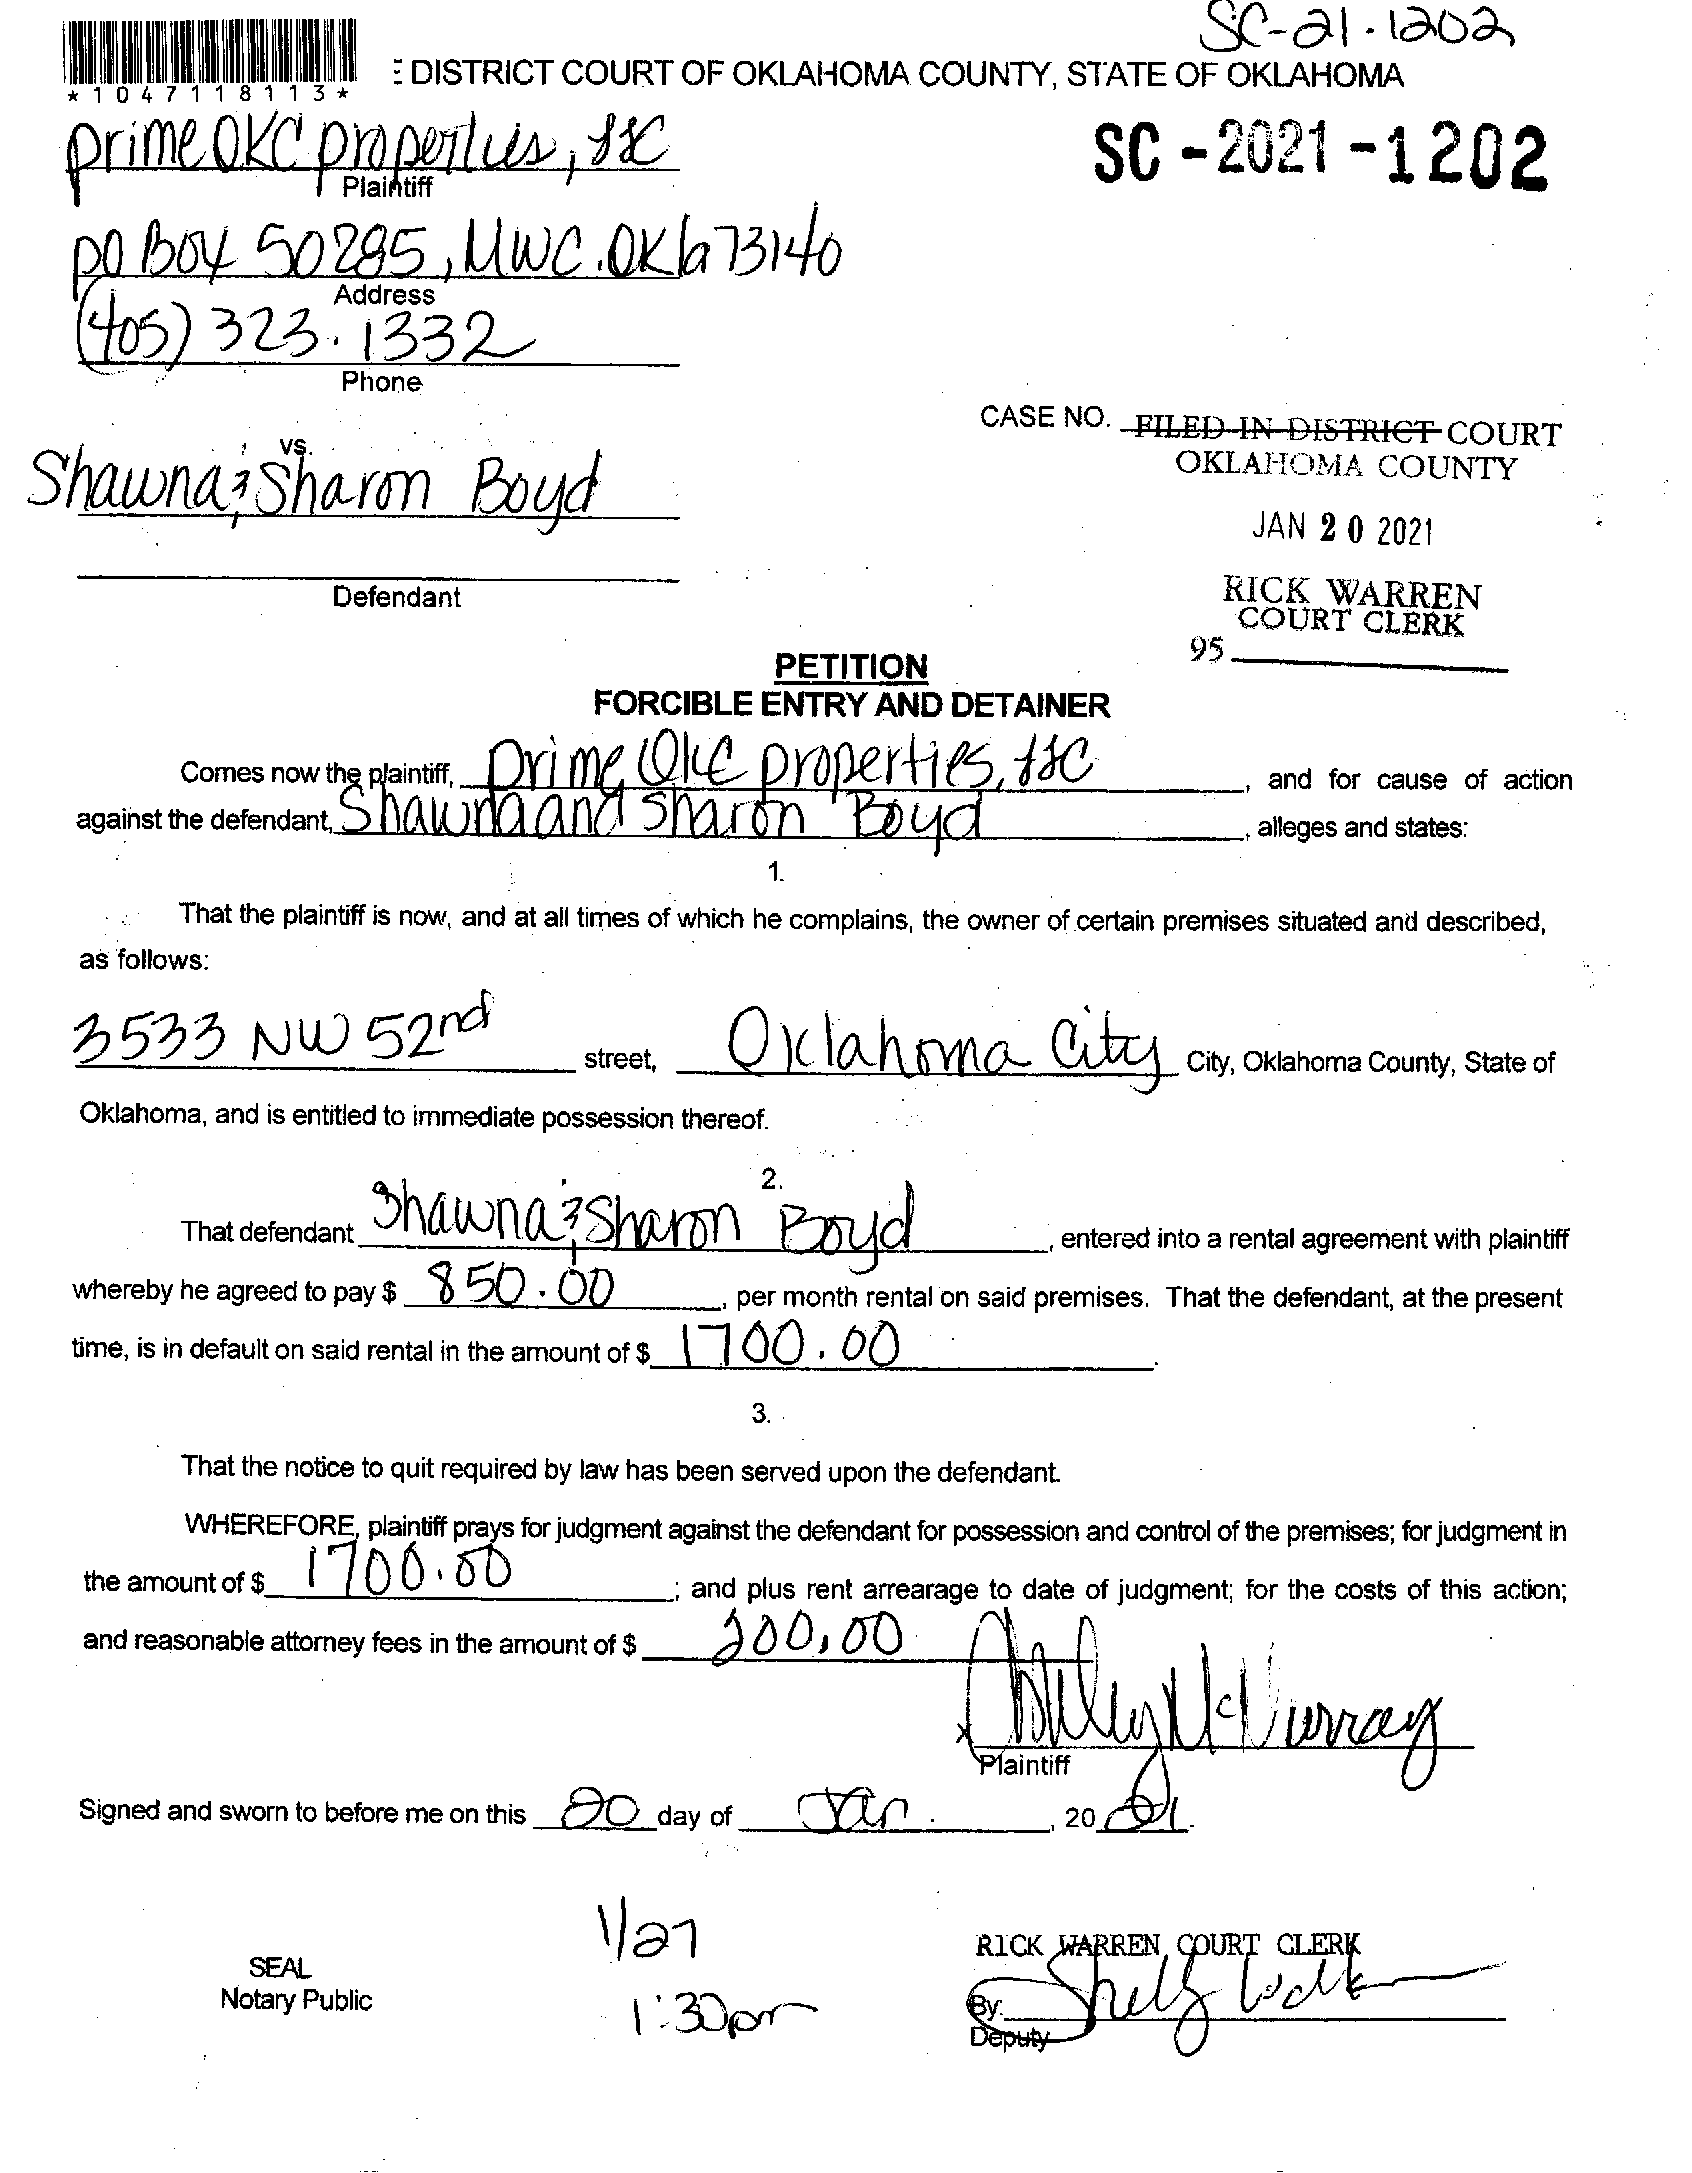 SC-21-1202
*1047118113*
E DISTRICT COURT OF OKLAHOMA COUNTY, STATE OF OKLAHOMA
prime OKC properties, LLC
Plaintiff
SC-2021-1202
PO Box 50285, MWC. Okla 73140
Address
(405) 323.1332
Phone
CASE NO. FILED IN DISTRICT COURT
OKLAHOMA COUNTY
vs.
Shawna & Sharon Boyd
JAN 20 2021
Defendant
RICK WARREN
COURT CLERK
95
PETITION
FORCIBLE ENTRY AND DETAINER
Comes now the plaintiff, Prime OKC properties, LLC, and for cause of action
against the defendant, Shawna and Sharon Boyd, alleges and states:
1.
That the plaintiff is now, and at all times of which he complains, the owner of certain premises situated and described,
as follows:
3533 NW 52nd street, Oklahoma City City, Oklahoma County, State of
Oklahoma, and is entitled to immediate possession thereof.
2.
That defendant Shawna & Sharon Boyd, entered into a rental agreement with plaintiff
whereby he agreed to pay $ 850.00, per month rental on said premises. That the defendant, at the present
time, is in default on said rental in the amount of $ 1700.00.
3.
That the notice to quit required by law has been served upon the defendant.
WHEREFORE, plaintiff prays for judgment against the defendant for possession and control of the premises; for judgment in
the amount of $ 1700.00; and plus rent arrearage to date of judgment; for the costs of this action;
and reasonable attorney fees in the amount of $ 200.00
x McMurray
Plaintiff
Signed and sworn to before me on this 20 day of Jan., 2021.
1/27
1:30pm
SEAL
Notary Public
RICK WARREN, COURT CLERK
By:
Deputy